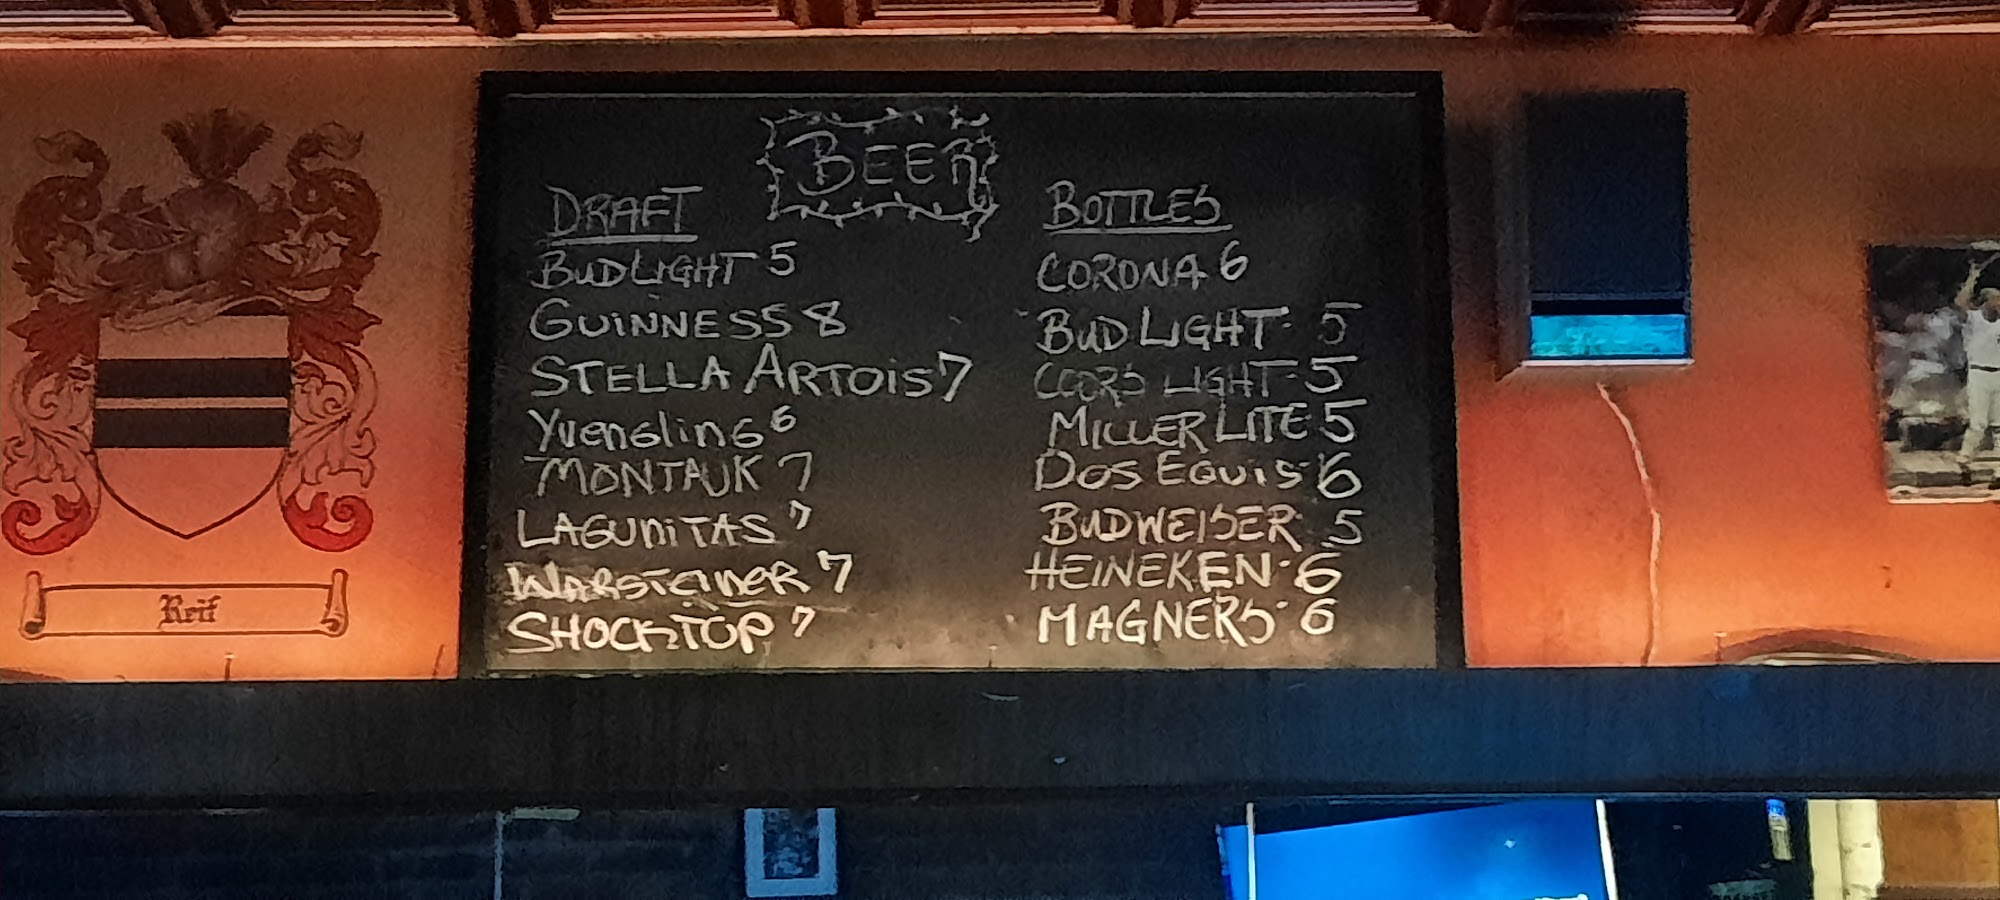 BEER
DRAFT
BUDLIGHT 5
GUINNESS 8
STELLA ARTOIS 7
Yuengling 6
MONTAUK 7
LAGUNITAS 7
WARSTEINER 7
SHOCKTOP 7
BOTTLES
CORONA 6
BUD LIGHT- 5
COORS LIGHT- 5
MILLER LITE- 5
DOS EQUIS- 6
BUDWEISER- 5
HEINEKEN- 6
MAGNERS- 6
Reif